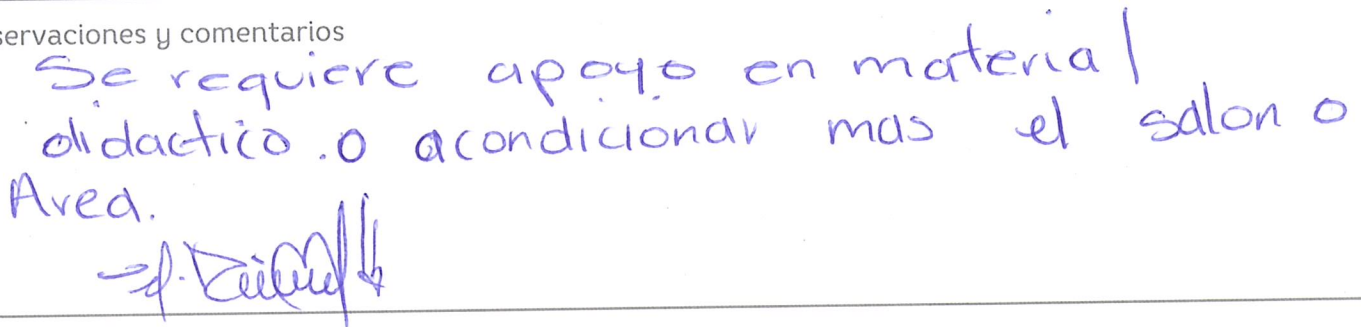 servaciones y comentarios
Se requiere apoyo en material
didactico .o acondicionar mas el salon o
Area.